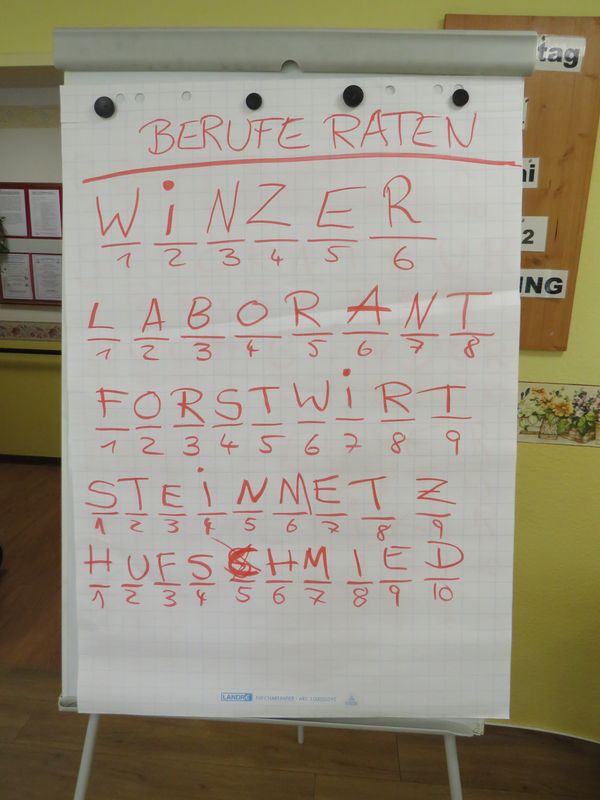 BERUFE RATEN
WiNZER
1 2 3 4 5 6
LABORANT
1 2 3 4 5 6 7 8
FORSTWiRT
1 2 3 4 5 6 7 8 9
STEiNMETZ
1 2 3 4 5 6 7 8 9
HUFSCHMIED
1 2 3 4 5 6 7 8 9 10
LANDRÉ
tag
2